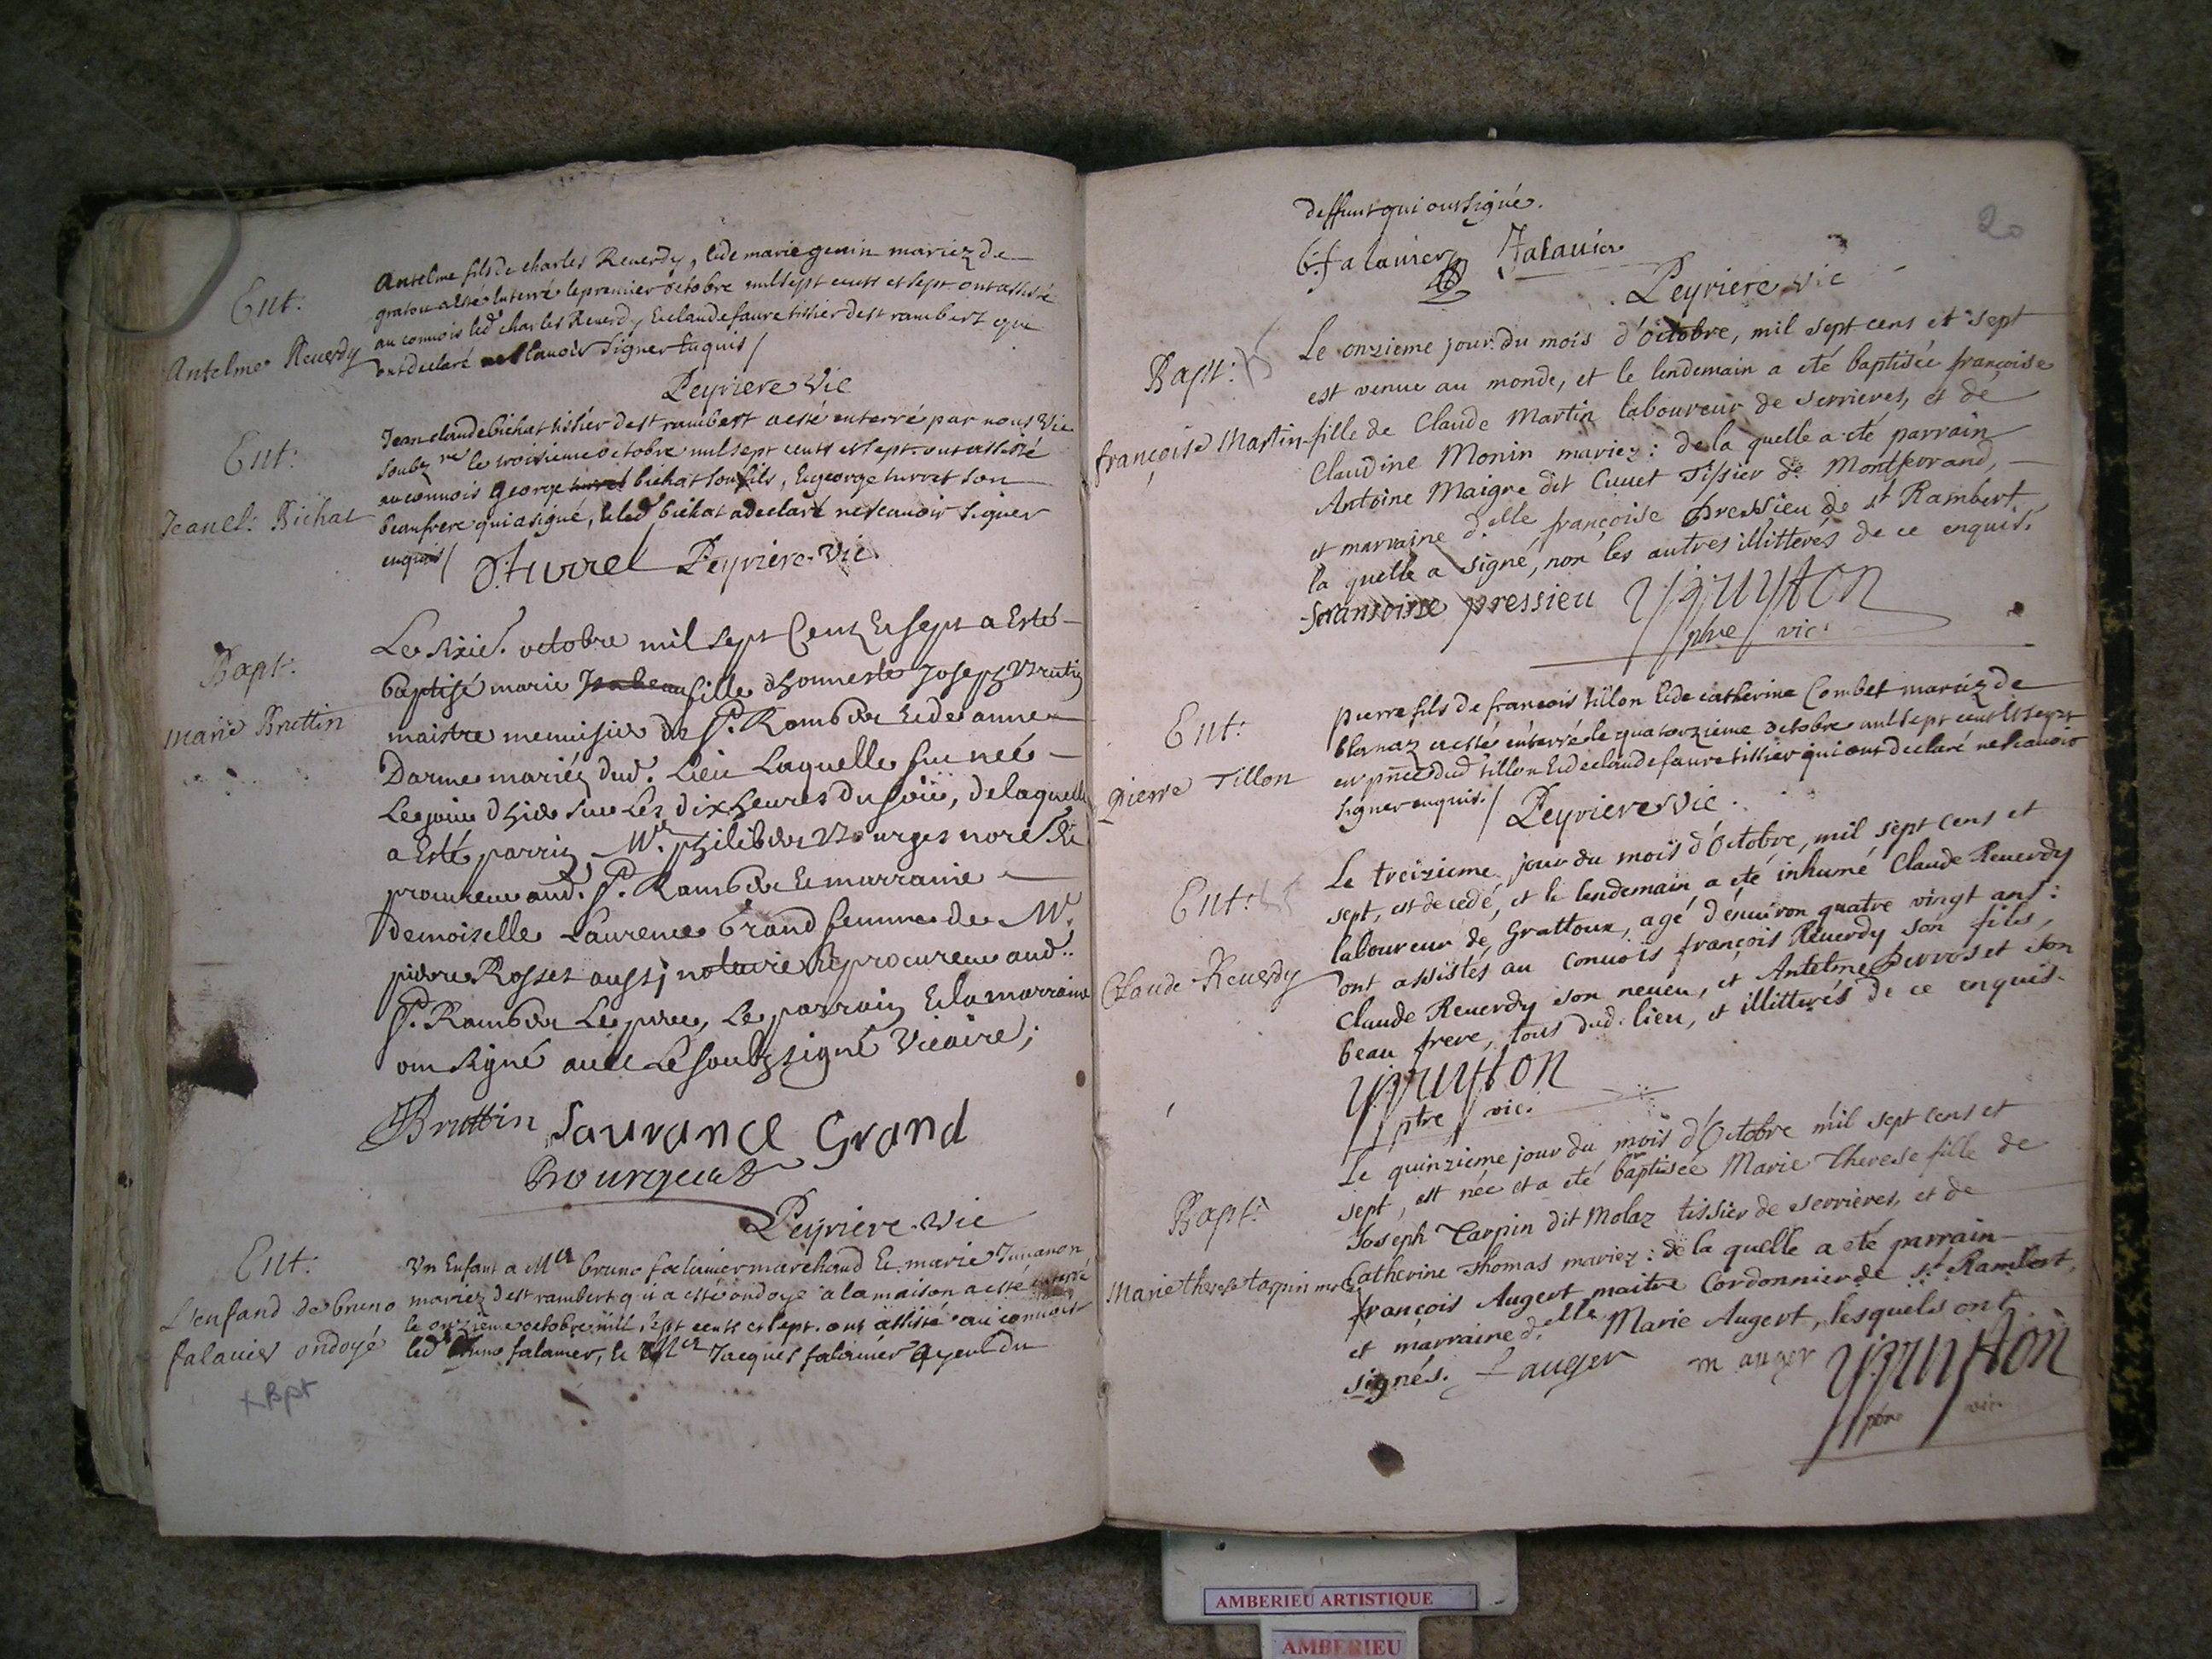 Ent:
Antelme Reuerdy
Antelme fils de charles Reuerdy, & de marie genin mariez de
gratou a esté enterré le premier octobre mil sept cents et sept ont assisté
au conuois led charles Reuerdy & claude faure tissier de st rambert qui
ont declaré ne scauoir signer enquis /
Peyriere vic
Ent:
Jean cl: Bichat
Jean claude bichat tissier de st rambert a esté enterré par nous vic
soubzne le troisieme octobre mil sept cents et sept. ont assisté
au conuois george bichat son fils, & george turret son
beaufrere qui a signé, & led bichat a declaré ne scauoir signer
enquis / G turrel Peyriere vic
Bapt:
marie Bruttin
Le sixie. octobre mil sept Centz & sept a Esté
baptisé marie Isabeau fille d'honneste Joseph Bruttin
maistre menuisier de St. Rambert & de anne
Darme mariés dud. Lieu Laquelle fut neé
Le jour d'hier sur Les dix heures du soir, de laquelle
a Esté parrin Mre. philibert Bourges nore &
procureur aud. St. Rambert & marraine
Demoiselle Laurence Grand femme de Mr.
pierre Rosset aussi notaire & procureur aud.
St. Rambert Le pere, Le parrain & la marraine
ont signé auec Le soubzsigné vicaire;
Bruttin Laurance Grand
Bourgeat
Peyriere vic
Ent:
L'enfand de bruno
falauier ondoyé
+ Bpt
Un Enfant a Mre bruno falauier marchand & marie Juuanon
mariez de st rambert qui a esté ondoyé a la maison a esté enterré
le onzieme octobre mil sept cents et sept. ont assisté au conuois
led bruno falauier, & Mre Jacques falauier ayeul du
20
deffunt qui ont signé.
b: falauier Falauier
Peyriere vic
Bapt:
françoise Martin
Le onzieme jour du mois d'octobre, mil sept cens et sept
est venue au monde, et le lendemain a eté baptisée françoise
fille de Claude Martin laboureur de serrieres, et de
Claudine Monin mariez: de la quelle a eté parrain
Antoine Maigre dit Cuuet Tissier de Montferrand,
et marraine d.elle françoise Pressieu de st Rambert
la quelle a signé, non les autres illitterés de ce enquis.
fransoisse pressieu
ptre vic.
Ent:
Pierre Tillon
pierre fils de francois tillon & de catherine Combet mariez de
blanaz a esté enterré le quatorzieme octobre mil sept cents et sept
en pnce dud tillon & de claude faure tissier qui ont declaré ne scauoir
signer enquis. / Peyriere vic.
Ent:
Claude Reuerdy
Le treizieme jour du mois d'Octobre, mil sept cens et
sept, est decedé, et le lendemain a eté inhumé Claude Reuerdy
laboureur de Grattoux, agé d'enuiron quatre vingt ans:
ont assistés au conuois françois Reuerdy son fils,
Claude Reuerdy son neueu, et Antelme Perroset son
beau frere, tous dud. lieu, et illitterés de ce enquis.
ptre vic.
Bapt:
Marie therese tarpin molaz
Le quinzieme jour du mois d'Octobre mil sept cens et
sept, est née et a eté baptisée Marie Therese fille de
Joseph Tarpin dit Molaz tissier de serrieres, et de
Catherine Thomas mariez: de la quelle a eté parrain
françois Augert maitre Cordonnier de st Rambert,
et marraine d.elle Marie Augert, lesquels ont
signés. f auger m auger
ptre vic.
AMBERIEU ARTISTIQUE
AMBERIEU